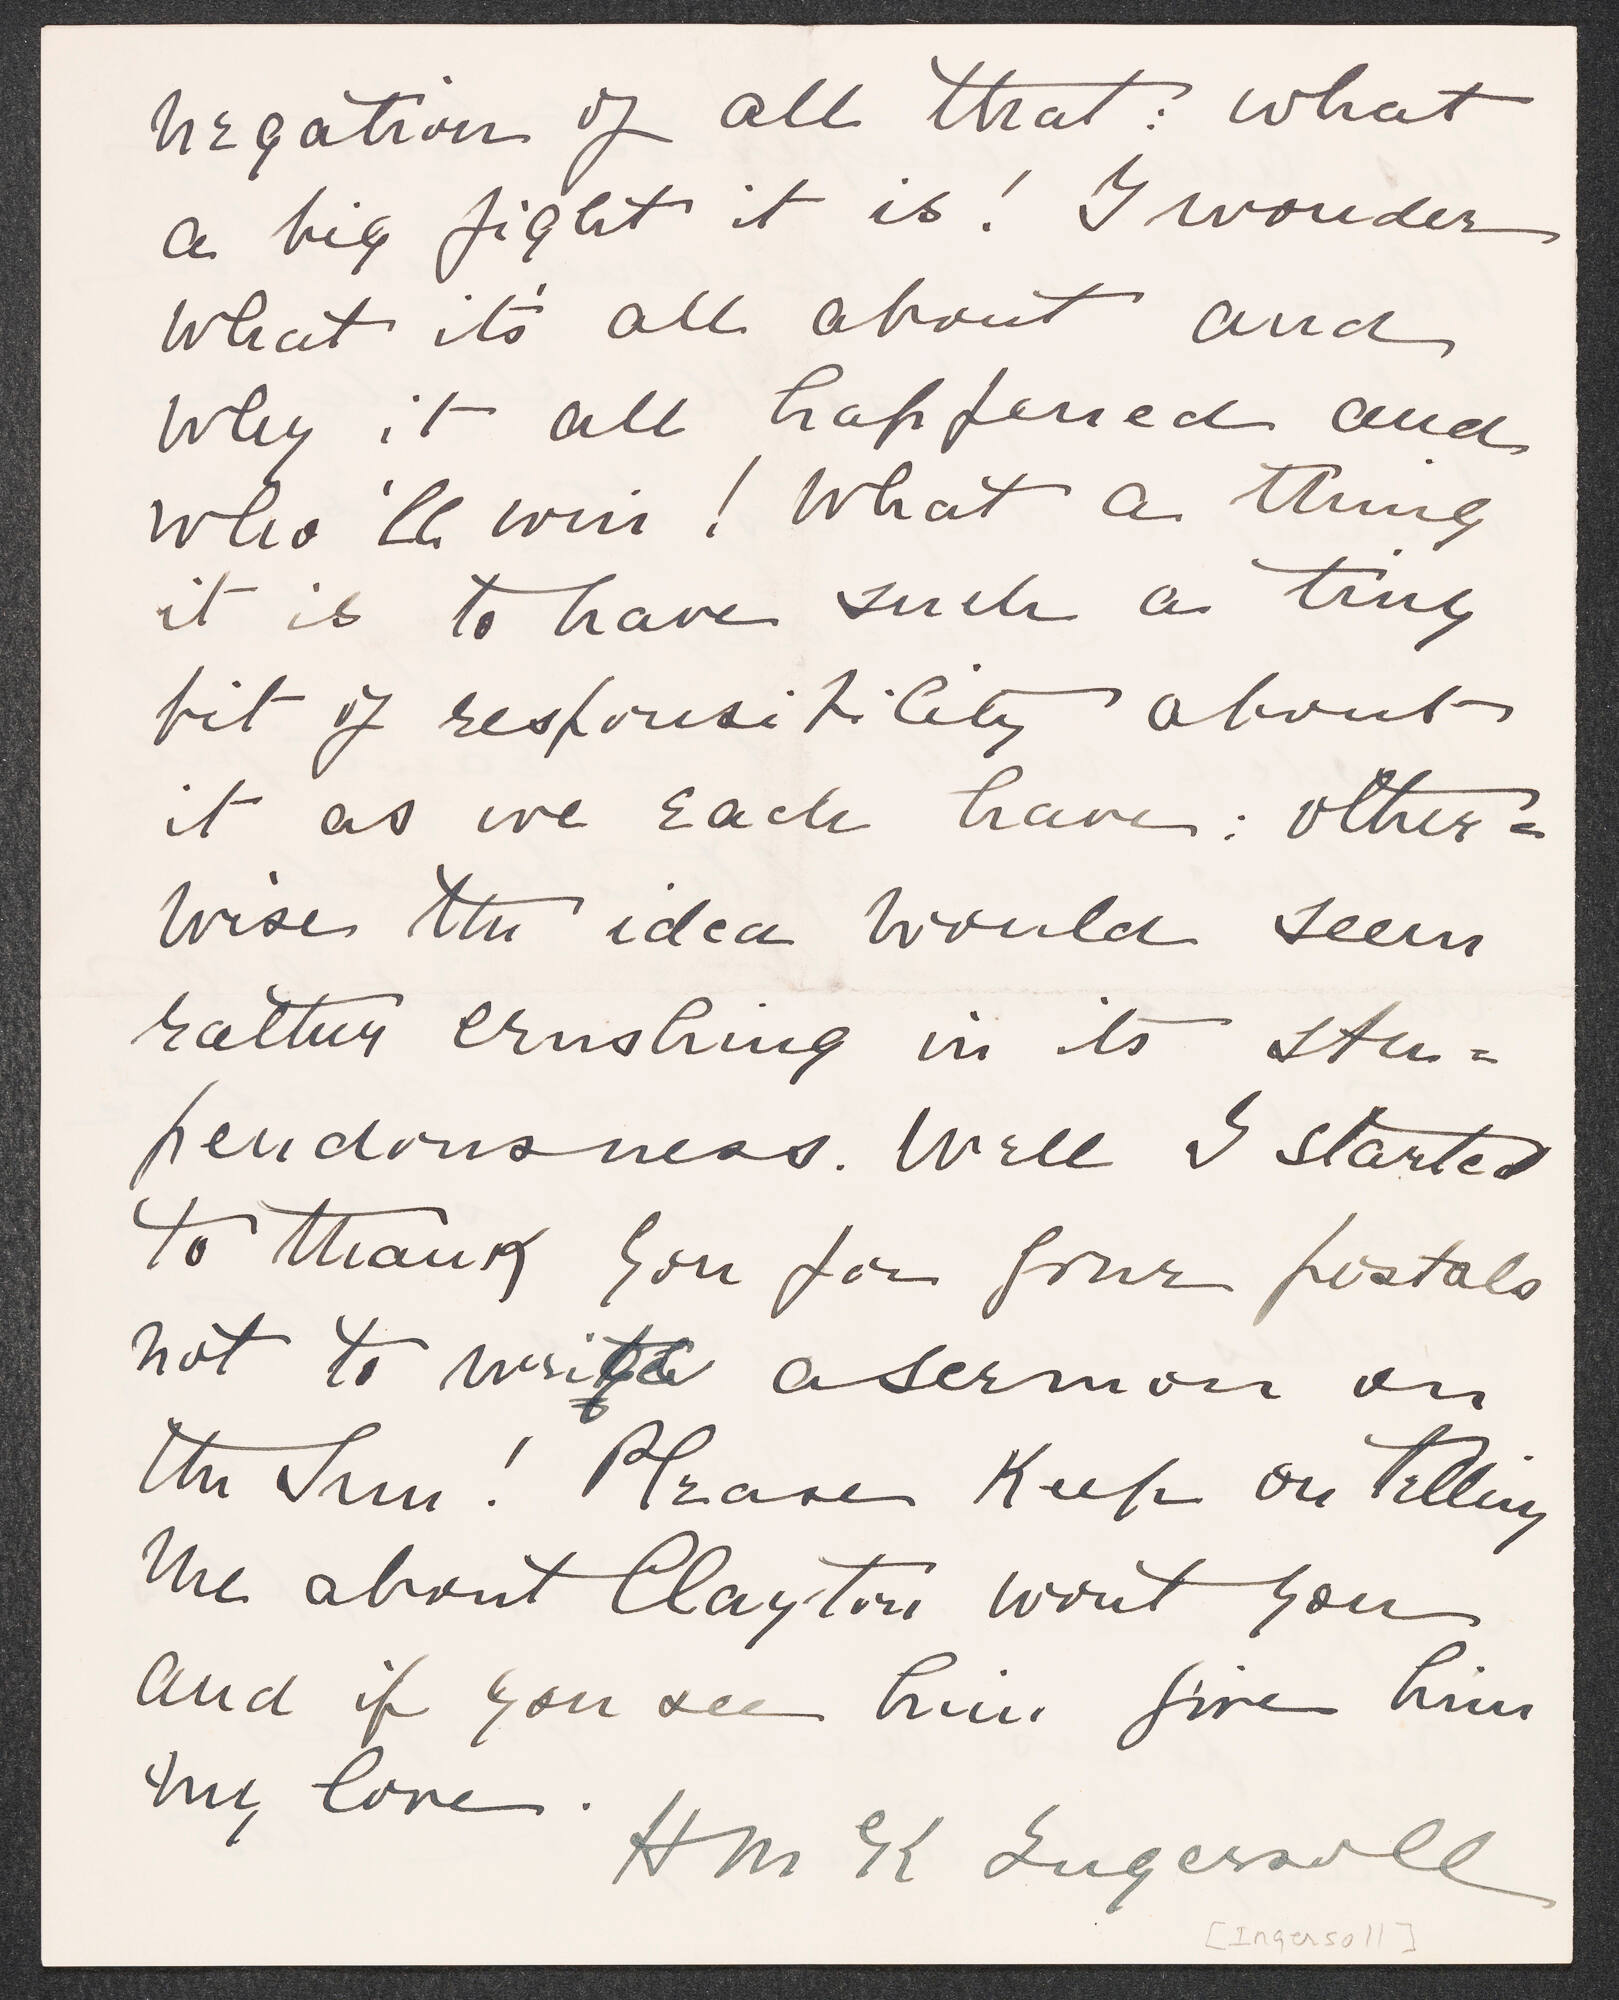 negation of all that: what
a big fight it is! I wonder
what it's all about and
why it all happened and
who'll win! What a thing
it is to have such a tiny
bit of responsibility about
it as we each have: other=
wise the idea would seem
rather crushing in its stu=
pendousness. Well I started
to thank you for your postals
not to write a sermon on
the Sun! Please keep on telling
me about Clayton wont you
and if you see him give him
my love.
H M K Ingersoll
[Ingersoll]